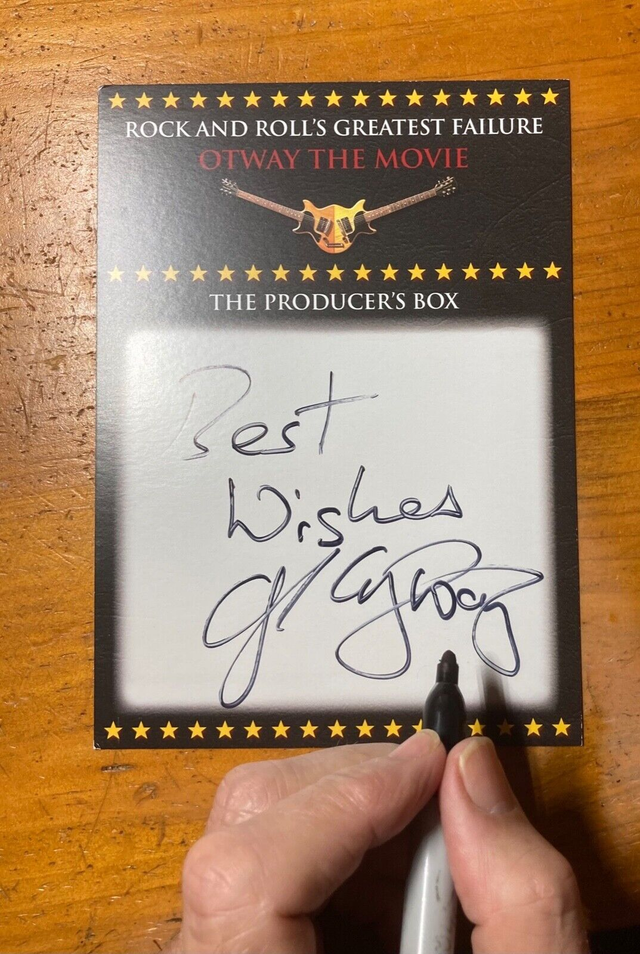 ROCK AND ROLL'S GREATEST FAILURE
OTWAY THE MOVIE
THE PRODUCER'S BOX
Best
Wishes